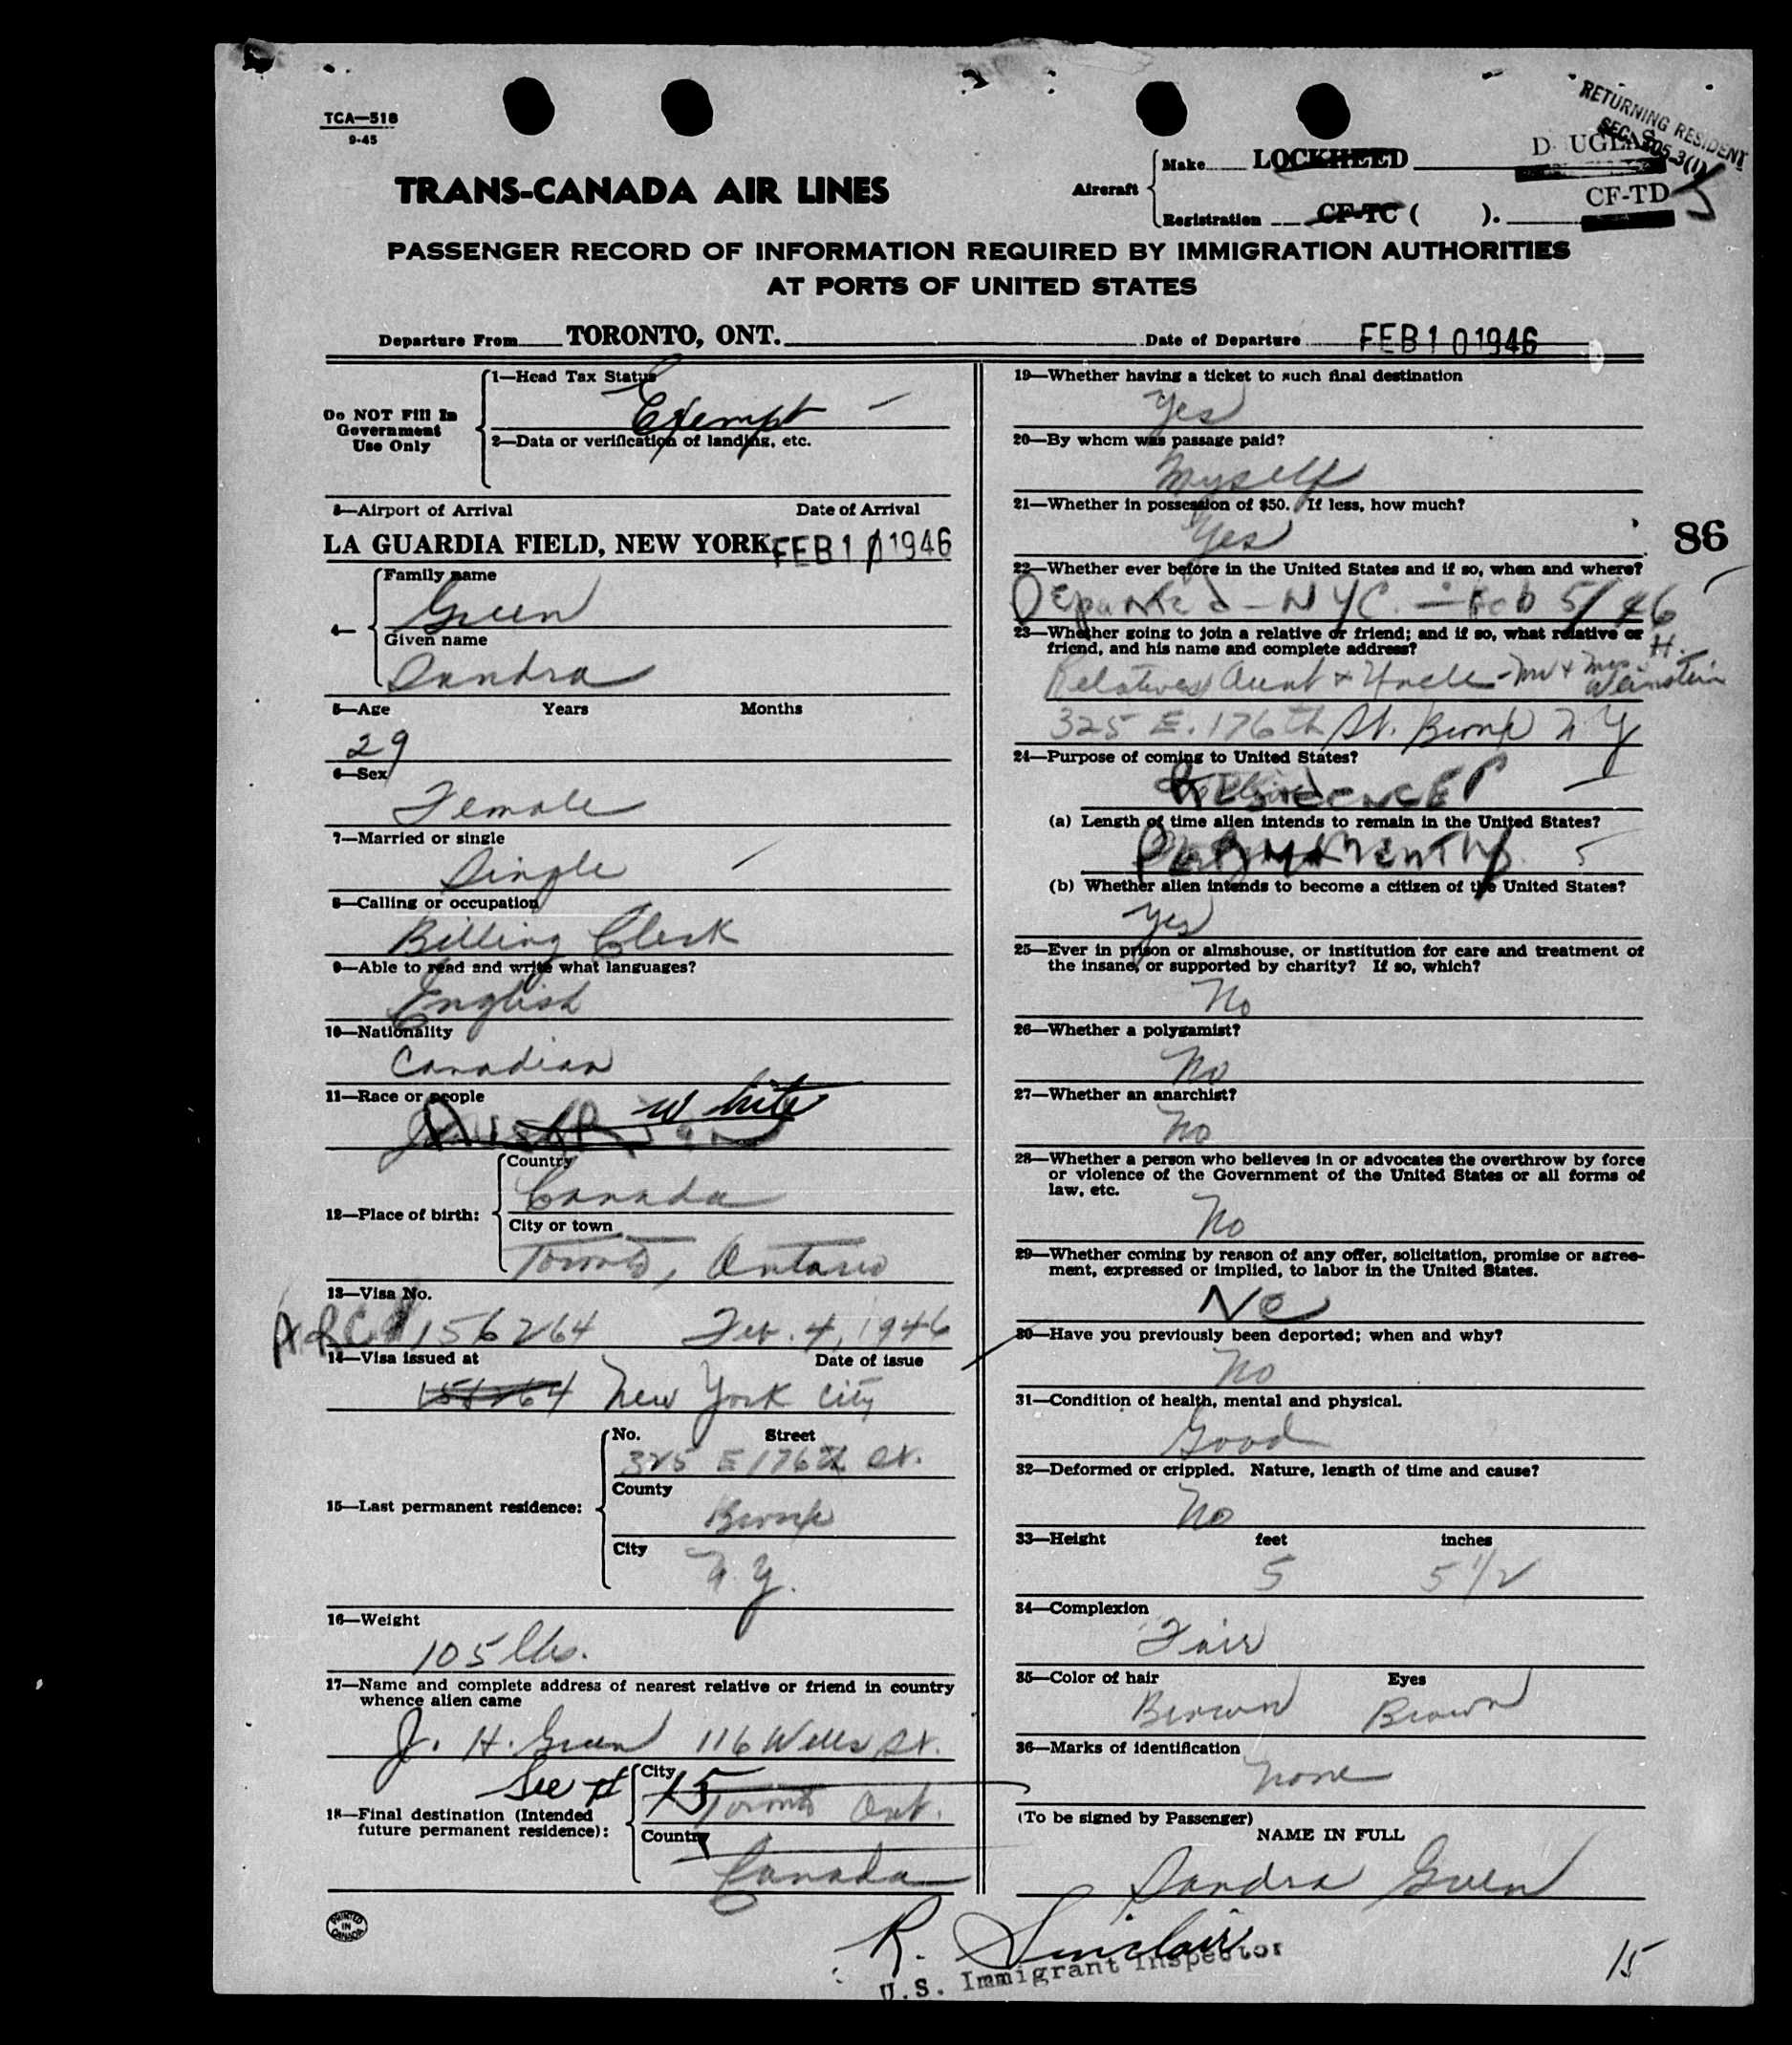 TCA—518
9-45
RETURNING RESIDENT
SEC. 205.3(1)
TRANS-CANADA AIR LINES
Aircraft
Make LOCKHEED D UGLAS
Registration CF-TC ( ). CF-TD
PASSENGER RECORD OF INFORMATION REQUIRED BY IMMIGRATION AUTHORITIES
AT PORTS OF UNITED STATES
Departure From TORONTO, ONT. Date of Departure FEB 10 1946
Do NOT Fill In
Government
Use Only
1—Head Tax Status
Exempt
2—Data or verification of landing, etc.
3—Airport of Arrival Date of Arrival
LA GUARDIA FIELD, NEW YORK FEB 10 1946
4—
Family name
Green
Given name
Sandra
5—Age Years Months
29
6—Sex
Female
7—Married or single
Single
8—Calling or occupation
Billing Clerk
9—Able to read and write what languages?
English
10—Nationality
Canadian
11—Race or people
White
12—Place of birth:
Country
Canada
City or town
Toronto, Ontario
13—Visa No.
156264 Feb. 4, 1946
14—Visa issued at Date of issue
156264 New York City
15—Last permanent residence:
No. Street
325 E 176th St.
County
Bronx
City
N.Y.
16—Weight
105 lbs.
17—Name and complete address of nearest relative or friend in country
whence alien came
J. H. Green 116 Wells St.
See # 15
18—Final destination (Intended
future permanent residence):
City
Toronto Ont.
Country
Canada
PRINTED
IN
CANADA
19—Whether having a ticket to such final destination
Yes
20—By whom was passage paid?
Myself
21—Whether in possession of $50. If less, how much?
Yes
86
22—Whether ever before in the United States and if so, when and where?
Departed - NYC. - Feb 5/46
23—Whether going to join a relative or friend; and if so, what relative or
friend, and his name and complete address?
Relatives Aunt & Uncle - Mr & Mrs. H. Weinstein
325 E. 176th St. Bronx N Y
24—Purpose of coming to United States?
RESIDENCE
(a) Length of time alien intends to remain in the United States?
PERMANENTLY
(b) Whether alien intends to become a citizen of the United States?
Yes
25—Ever in prison or almshouse, or institution for care and treatment of
the insane, or supported by charity? If so, which?
No
26—Whether a polygamist?
No
27—Whether an anarchist?
No
28—Whether a person who believes in or advocates the overthrow by force
or violence of the Government of the United States or all forms of
law, etc.
No
29—Whether coming by reason of any offer, solicitation, promise or agree-
ment, expressed or implied, to labor in the United States.
No
30—Have you previously been deported; when and why?
No
31—Condition of health, mental and physical.
Good
32—Deformed or crippled. Nature, length of time and cause?
No
33—Height feet inches
5 5 1/2
34—Complexion
Fair
35—Color of hair Eyes
Brown Brown
36—Marks of identification
None
(To be signed by Passenger)
NAME IN FULL
Sandra Green
R. Sinclair
U.S. Immigrant Inspector
15